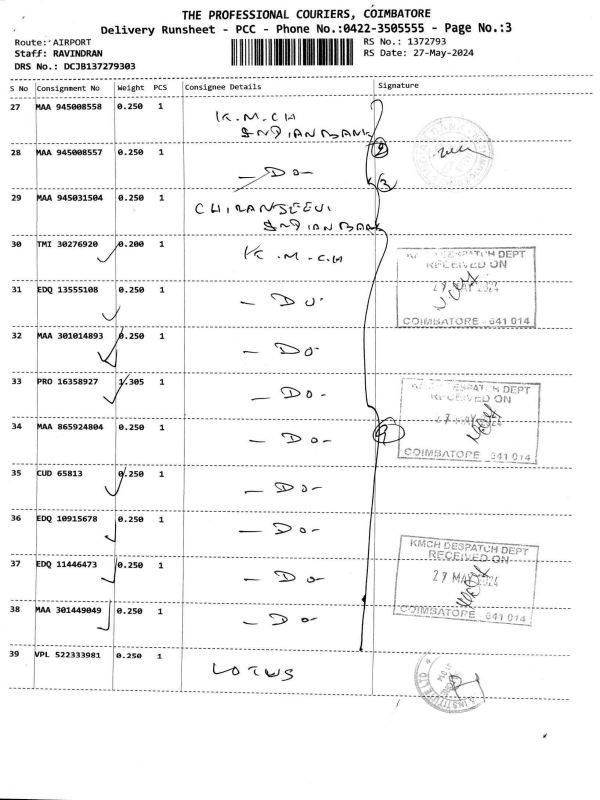 THE PROFESSIONAL COURIERS, COIMBATORE
Delivery Runsheet - PCC - Phone No.:0422-3505555 - Page No.:3
Route: AIRPORT RS No.: 1372793
Staff: RAVINDRAN RS Date: 27-May-2024
DRS No.: DCJB137279303
S No Consignment No Weight PCS Consignee Details Signature
27 MAA 945008558 0.250 1 K.M.CH
INDIAN BANK
28 MAA 945008557 0.250 1 - Do - 2
3
29 MAA 945031504 0.250 1 CHIRANJEEVI
INDIAN BANK
30 TMI 30276920 0.200 1 K.M.C.H
DESPATCH DEPT
RECEIVED ON
27 MAY 2024
COIMBATORE - 641 014
31 EDQ 13555108 0.250 1 - Do -
32 MAA 301014893 0.250 1 - Do -
33 PRO 16358927 1.305 1 - Do -
DESPATCH DEPT
RECEIVED ON
27 MAY 2024
COIMBATORE 641 014
34 MAA 865924804 0.250 1 - Do - 9
35 CUD 65813 0.250 1 - Do -
36 EDQ 10915678 0.250 1 - Do -
KMCH DESPATCH DEPT
RECEIVED ON
27 MAY 2024
COIMBATORE 641 014
37 EDQ 11446473 0.250 1 - Do -
38 MAA 301449049 0.250 1 - Do -
39 VPL 522333981 0.250 1 LOTUS